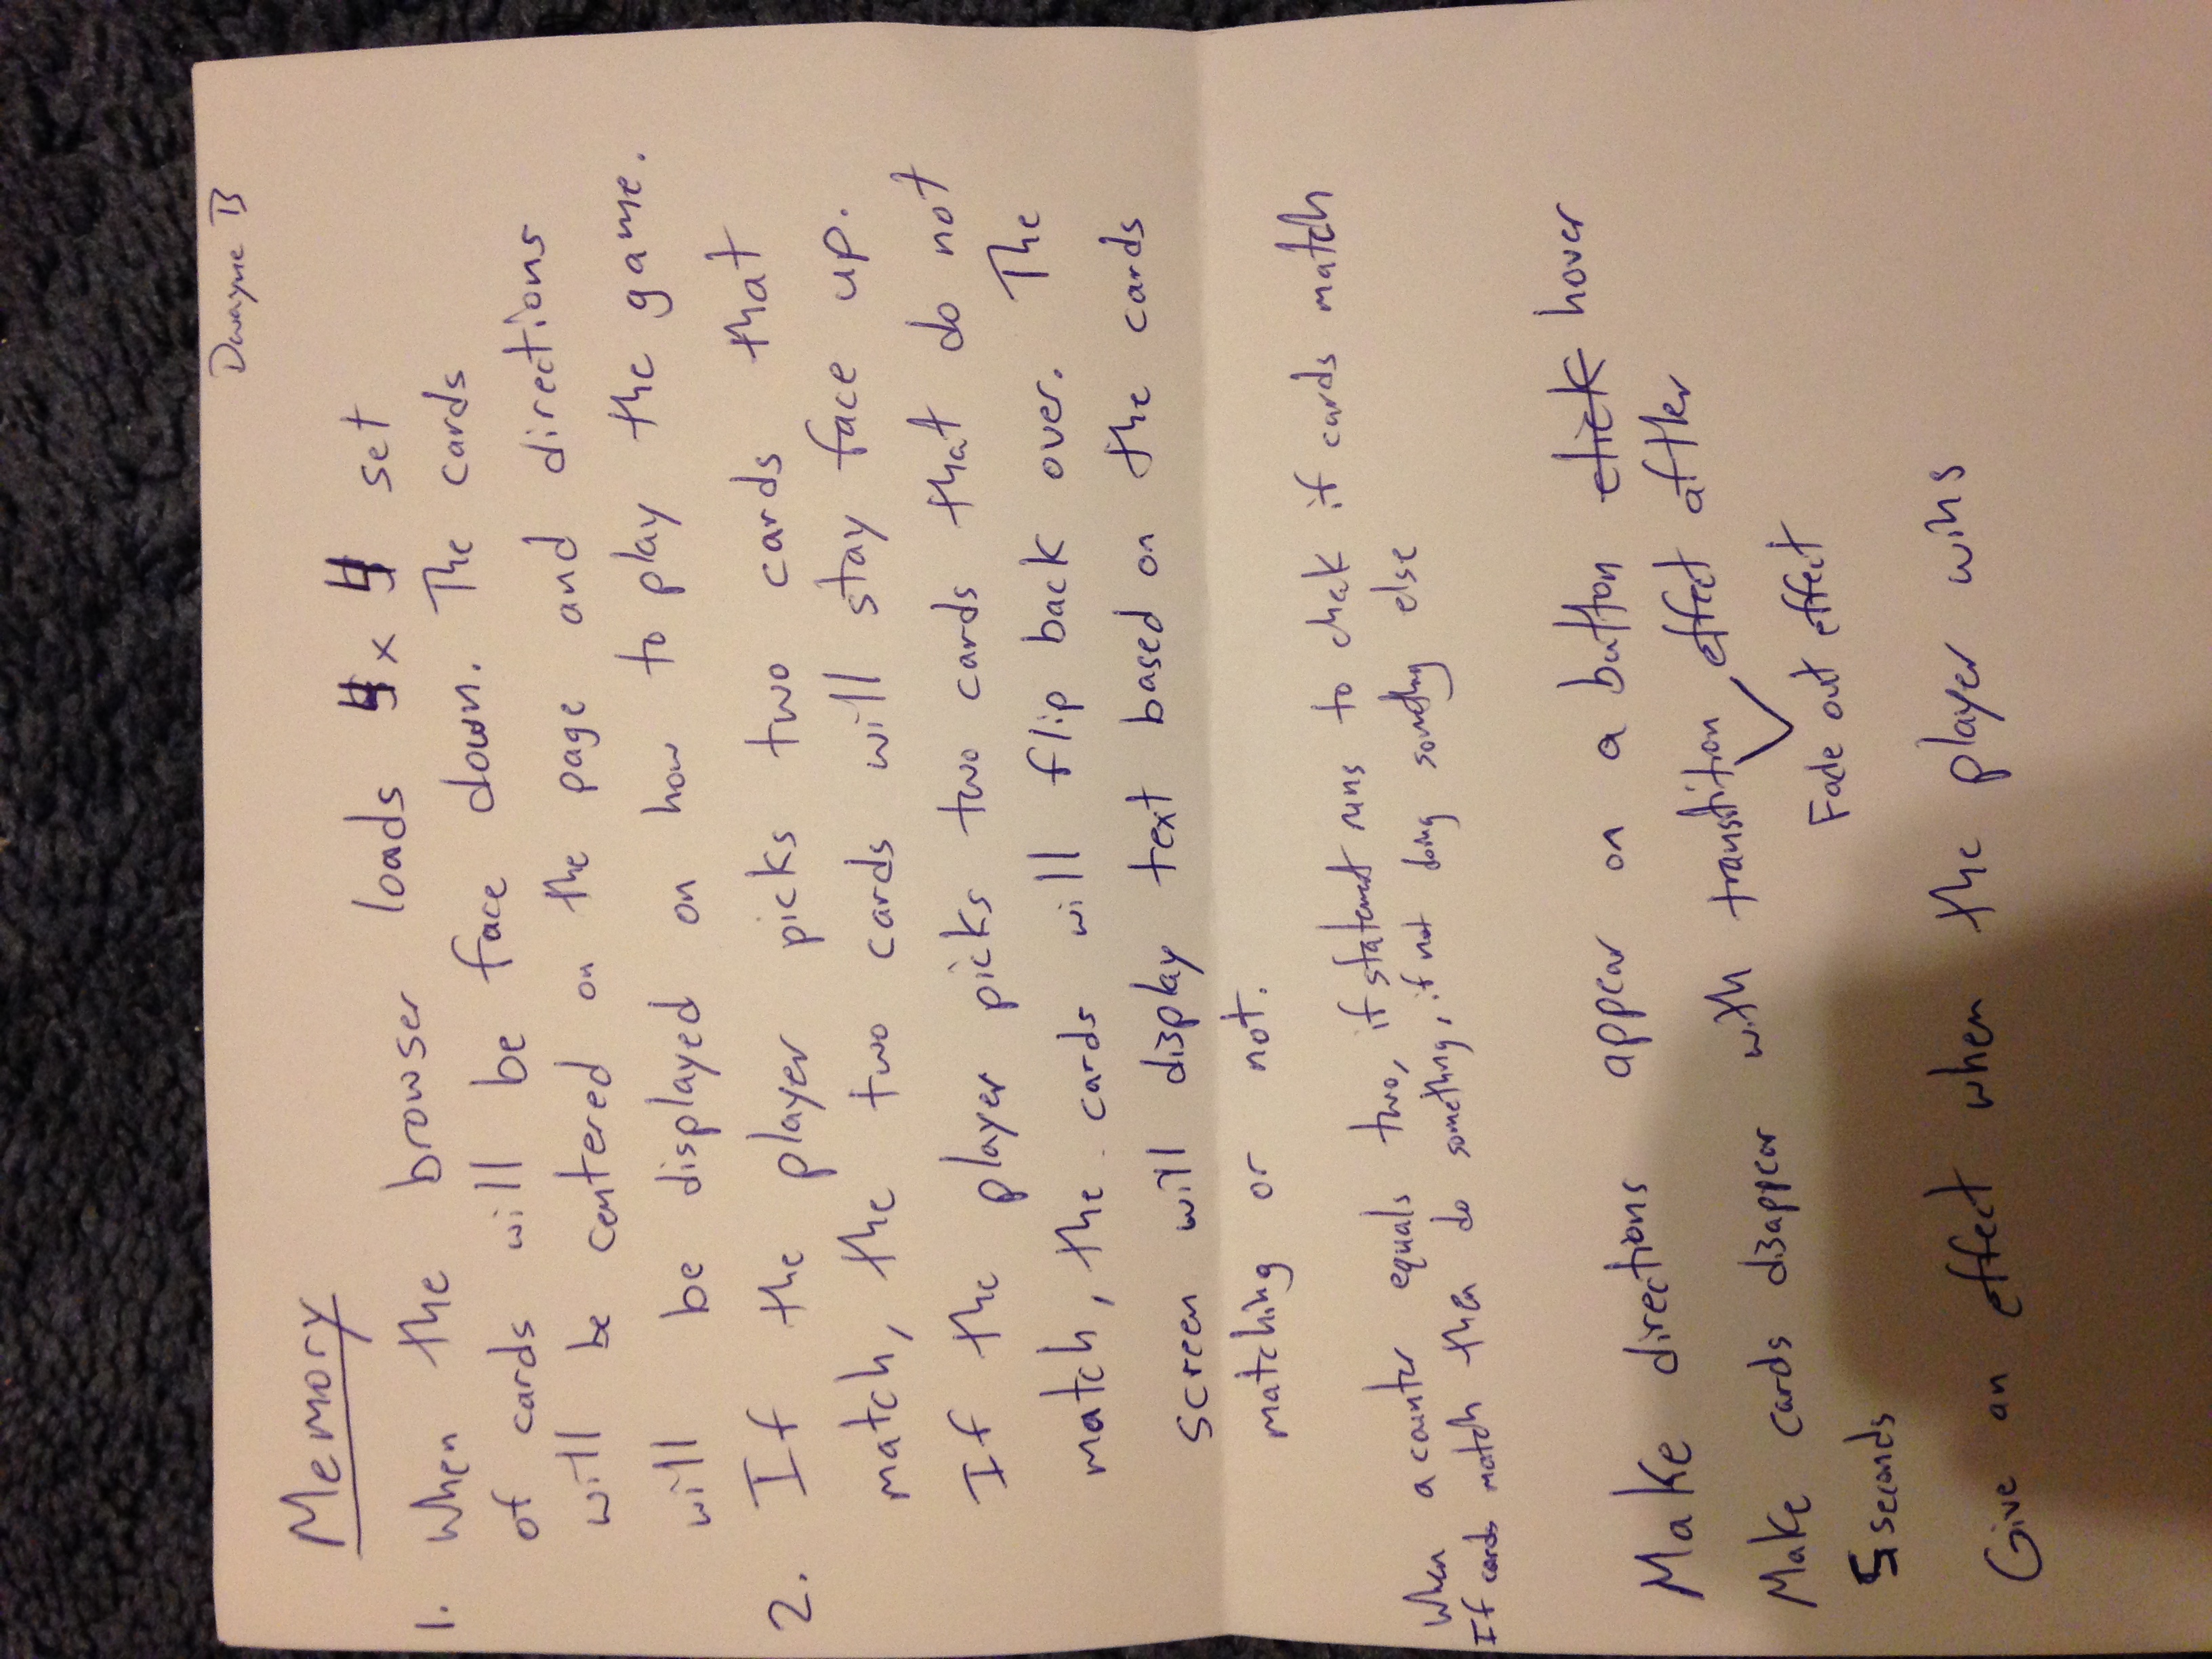 Dwayne B
Memory
1. When the browser loads 4 x 4 set
of cards will be face down. The cards
will be centered on the page and directions
will be displayed on how to play the game.
2. If the player picks two cards that
match, the two cards will stay face up.
If the player picks two cards that do not
match, the cards will flip back over. The
screen will display text based on the cards
matching or not.
When a counter equals two, if statement runs to check if cards match
If cards match then do something, if not doing something else
Make directions appear on a button click hover
Make cards disappear with transition effect after
Fade out effect
5 seconds
Give an effect when the player wins